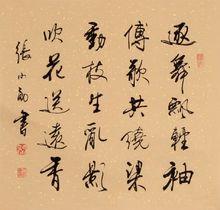 逐舞飄輕袖
傳歌共繞梁
動枝生亂影
吹花送遠香
張小韌書